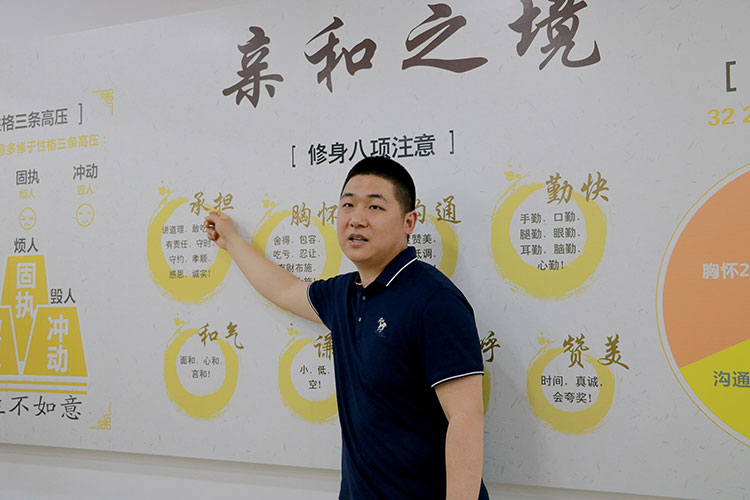 亲和之境
格三条高压 ]
多缘于性格三条高压：
固执
冲动
烦人
毁人
烦人
固执
毁人
冲动
不如意
[ 修身八项注意 ]
承担
讲道理、敢吃
有责任、守时
守约、孝顺、
感恩、诚实！
胸怀
舍得、包容、
吃亏、忍让、
财布施、
沟通
赞美、
低调
勤快
手勤、口勤、
腿勤、眼勤、
耳勤、脑勤、
心勤！
和气
面和、心和、
言和！
小、低、
空！
呼
赞美
时间、真诚、
会夸奖！
[
32 2
胸怀2
沟通